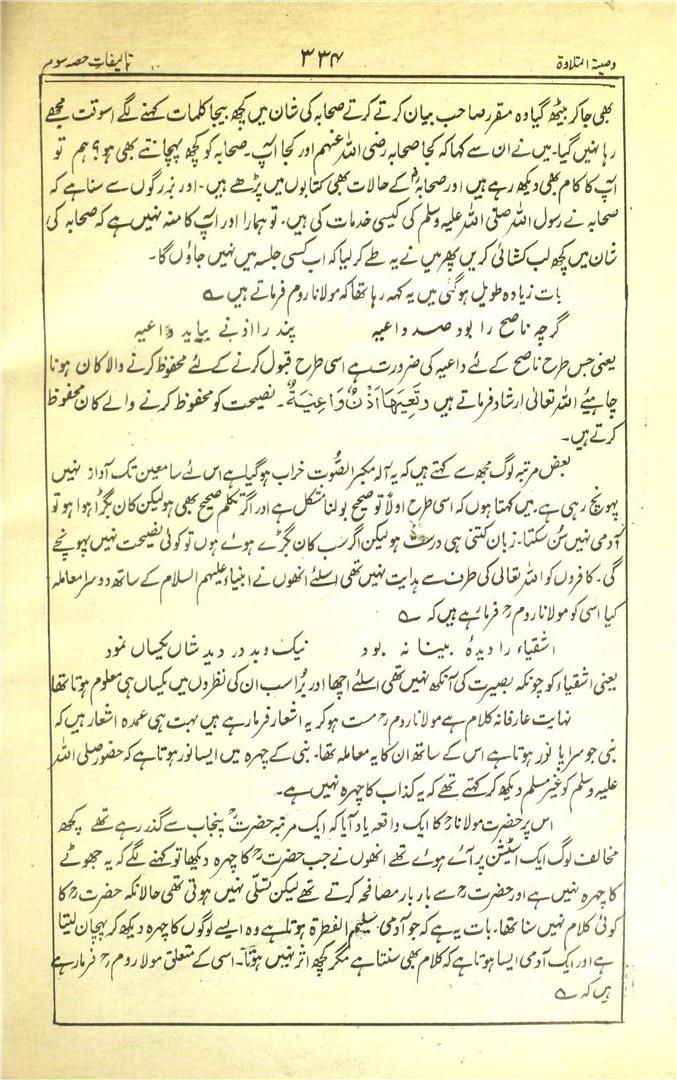 وصیۃ التلاوۃ ۳۳۴ تالیفات حصہ سوم
بھی جا کر بیٹھ گیا وہ مقرر صاحب بیان کرتے کرتے صحابہ کی شان میں کچھ بیجا کلمات کہنے لگے اسوقت مجھے
رہا نہیں گیا۔ میں نے ان سے کہا کہ کجا صحابہ رضی اللہ عنہم اور کجا آپ۔ صحابہ کو کچھ پہچانتے بھی ہو؟ ہم تو
آپ کا کام بھی دیکھ رہے ہیں اور صحابہؓ کے حالات بھی کتابوں میں پڑھے ہیں۔ اور بزرگوں سے سنا ہے کہ
صحابہ نے رسول اللہ صلی اللہ علیہ وسلم کی کیسی خدمات کی ہیں۔ تو ہمارا اور آپ کا منہ نہیں ہے کہ صحابہ کی
شان میں کچھ لب کشائی کریں پھر میں نے یہ طے کر لیا کہ اب کسی جلسہ میں نہیں جاؤں گا۔
بات زیادہ طویل ہو گئی میں یہ کہہ رہا تھا کہ مولانا روم فرماتے ہیں ؎
گرچہ ناصح را بود صد داعیہ پند را اذنے بباید واعیہ
یعنی جس طرح ناصح کے لئے داعیہ کی ضرورت ہے اسی طرح قبول کرنے کے لئے محفوظ کرنے والا کان ہونا
چاہیئے اللہ تعالیٰ ارشاد فرماتے ہیں وَتَعِيَهَا أُذُنٌ وَاعِيَةٌ۔ نصیحت کو محفوظ کرنے والے کان محفوظ
کرتے ہیں۔
بعض مرتبہ لوگ مجھ سے کہتے ہیں کہ یہ آلہ مکبر الصُّوت خراب ہو گیا ہے اس لئے سامعین تک آواز نہیں
پہونچ رہی ہے۔ میں کہتا ہوں کہ اسی طرح اولاً تو صحیح بولنا مشکل ہے اور اگر تکلم صحیح بھی ہو لیکن کان بگڑا ہوا ہو تو
آدمی نہیں سُن سکتا۔ زبان کتنی ہی درست ہو لیکن اگر سب کان بگڑے ہوئے ہوں تو کوئی نصیحت نہیں پہونچے
گی۔ کافروں کو اللہ تعالی کی طرف سے ہدایت نہیں تھی اسلئے انھوں نے انبیاء علیہم السلام کے ساتھ دوسرا معاملہ
کیا اسی کو مولانا رومؒ فرما رہے ہیں کہ ؎
اشقیاء را دیدۂ بینا نہ بود نیک و بد در دید شاں یکساں نمود
یعنی اشقیاء کو چونکہ بصیرت کی آنکھ نہیں تھی اسلئے اچھا اور بُرا سب ان کی نظروں میں یکساں ہی معلوم ہوتا تھا
نہایت عارفانہ کلام ہے مولانا رومؒ مست ہو کر یہ اشعار فرما رہے ہیں بہت ہی عمدہ اشعار ہیں کہ
نبی جو سراپا نور ہوتا ہے اس کے ساتھ ان کا یہ معاملہ تھا۔ نبی کے چہرہ میں ایسا نور ہوتا ہے کہ حضور صلی اللہ
علیہ وسلم کو غیر مسلم دیکھ کر کہتے تھے کہ یہ کذاب کا چہرہ نہیں ہے۔
اس پر حضرت مولاناؒ کا ایک واقعہ یاد آیا کہ ایک مرتبہ حضرتؒ پنجاب سے گذر رہے تھے کچھ
مخالف لوگ ایک اسٹیشن پر آئے ہوئے تھے انھوں نے جب حضرتؒ کا چہرہ دیکھا تو کہنے لگے کہ یہ جھوٹے
کا چہرہ نہیں ہے اور حضرتؒ سے بار بار مصافحہ کرتے تھے لیکن تسلّی نہیں ہوتی تھی حالانکہ حضرتؒ کا
کوئی کلام نہیں سنا تھا۔ بات یہ ہے کہ جو آدمی سلیم الفطرۃ ہوتا ہے وہ ایسے لوگوں کا چہرہ دیکھ کر پہچان لیتا
ہے اور ایک آدمی ایسا ہوتا ہے کہ کلام بھی سنتا ہے مگر کچھ اثر نہیں ہوتا۔ اسی کے متعلق مولانا رومؒ فرما رہے
ہیں کہ ؎